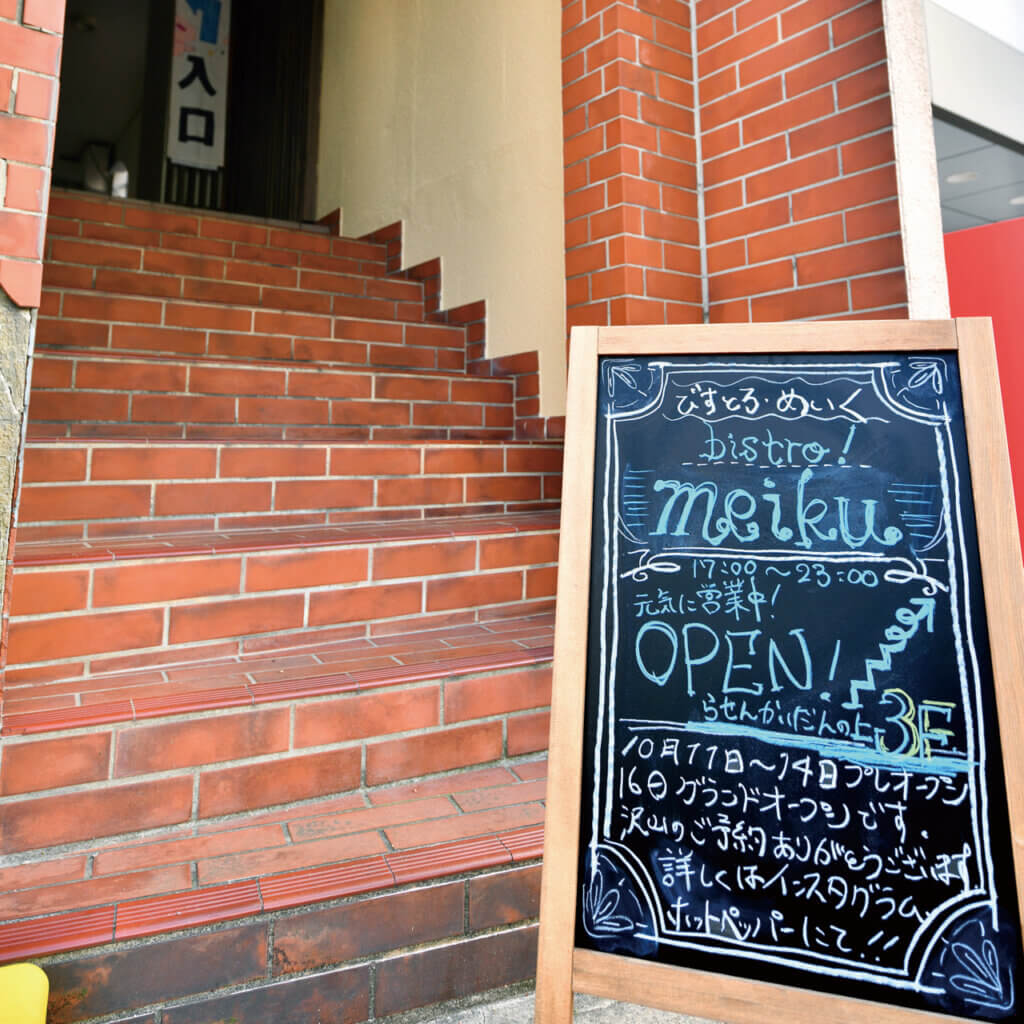 入口
びすとろ・めいく
bistro!
meiku
17:00〜23:00
元気に営業中!
OPEN!
らせんかいだんの上 3F
10月11日〜14日プレオープン
16日グランドオープンです.
沢山のご予約ありがとうございます
詳しくはインスタグラム
ホットペッパーにて!!